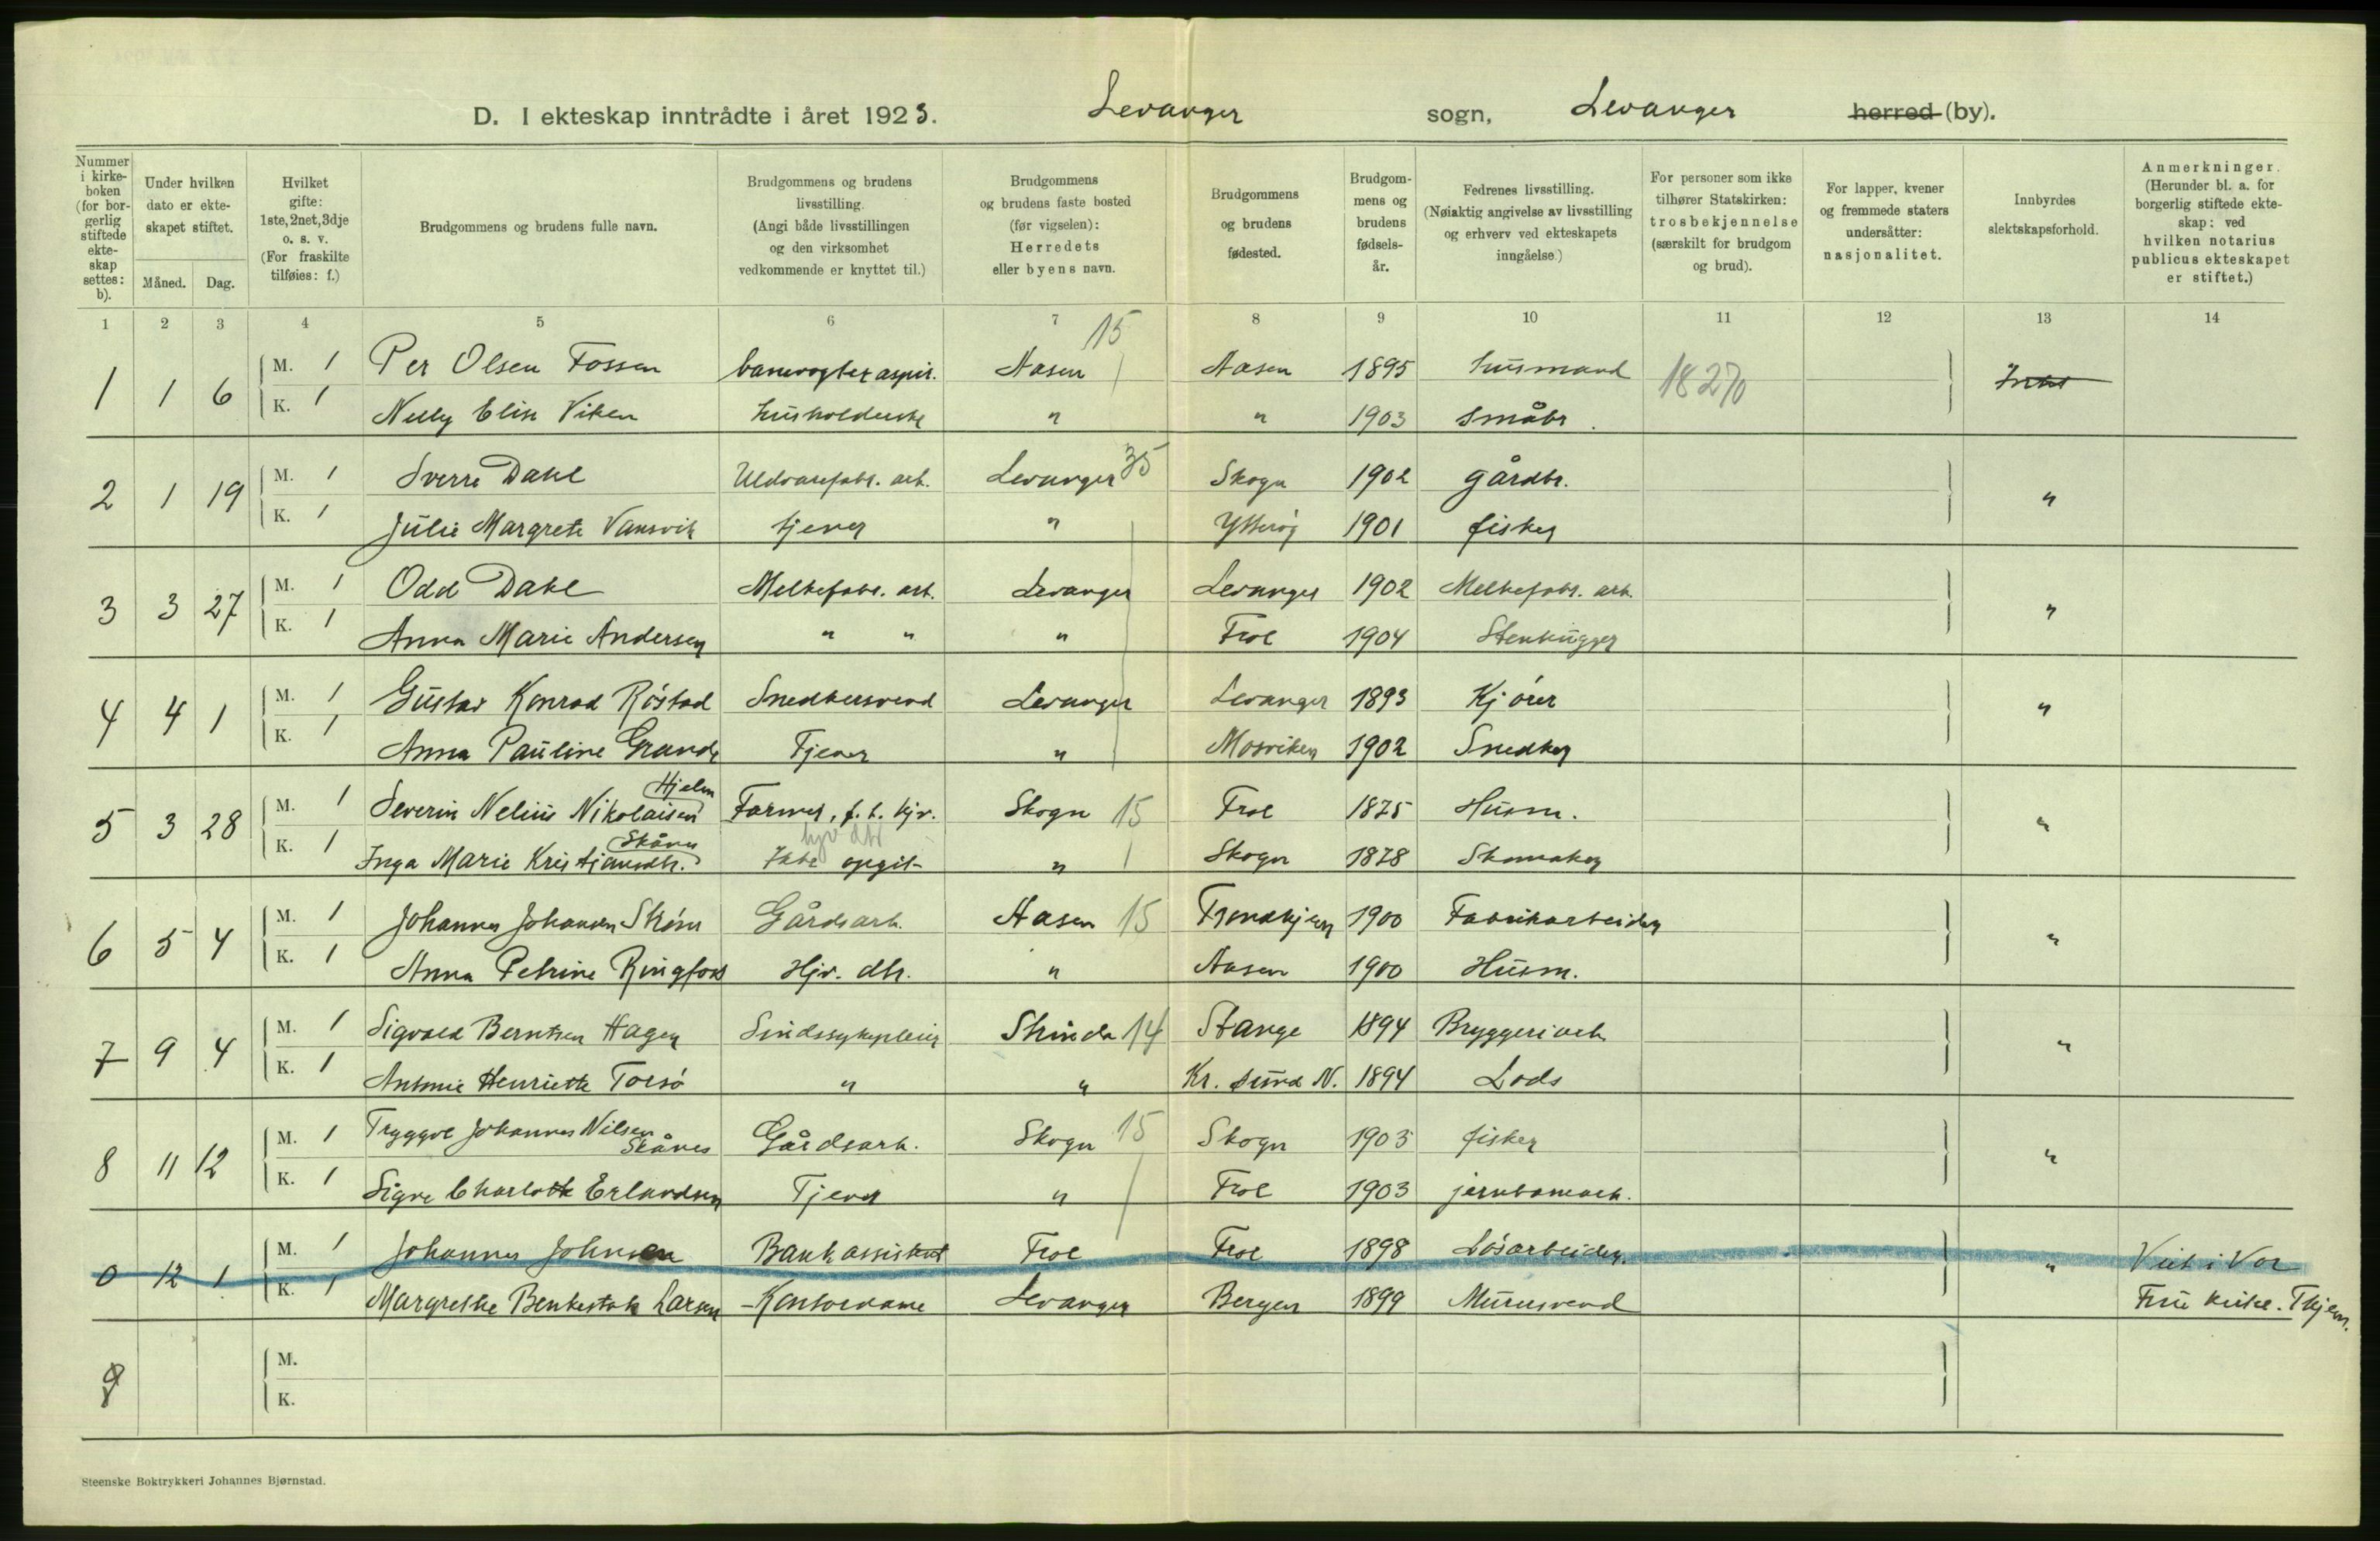 D. I ekteskap inntrådte i året 1923. Levanger sogn, Levanger herred (by).
Nummer i kirkeboken (for borgerlig stiftede ekteskap settes: b).
Under hvilken dato er ekteskapet stiftet.
Måned. Dag.
Hvilket gifte: 1ste, 2net, 3dje o. s. v. (For fraskilte tilføies: f.)
Brudgommens og brudens fulle navn.
Brudgommens og brudens livsstilling. (Angi både livsstillingen og den virksomhet vedkommende er knyttet til.)
Brudgommens og brudens faste bosted (før vigselen): Herredets eller byens navn.
Brudgommens og brudens fødested.
Brudgommens og brudens fødselsår.
Fedrenes livsstilling. (Nøiaktig angivelse av livsstilling og erhverv ved ekteskapets inngåelse.)
For personer som ikke tilhører Statskirken: trosbekjennelse (særskilt for brudgom og brud).
For lapper, kvener og fremmede staters undersåtter: nasjonalitet.
Innbyrdes slektskapsforhold.
Anmerkninger. (Herunder bl. a. for borgerlig stiftede ekteskap: ved hvilken notarius publicus ekteskapet er stiftet.)
1 2 3 4 5 6 7 8 9 10 11 12 13 14
15
1 1 6 M. 1 Per Olsen Fossen banevogter aspir. Aasen Aasen 1895 husmand 18270
K. 1 Nelly Elise Viken husholderske " " 1903 småbr.
2 1 19 M. 1 Sverre Dahl Uldvarefabr. arb. Levanger 35 Skogn 1902 gårdbr. "
K. 1 Julie Margrete Vansvik tjener " Ytterøy 1901 fisker
3 3 27 M. 1 Odd Dahl Melkefabr. arb. Levanger Levanger 1902 Melkefabr. arb. "
K. 1 Anna Marie Andersen " " " Frol 1904 Stenhugger
4 4 1 M. 1 Gustav Konrad Røstad Snedkersvend Levanger Levanger 1893 Kjører "
K. 1 Anna Pauline Grande Tjener " Mosviken 1902 Snedker
Hjelm
5 3 28 M. 1 Severin Nelius Nikolaisen Farmer, f. t. hjv. Skogn 15 Frol 1875 Husm. "
Skånes hjv dtr
K. 1 Inga Marie Kristjansdtr. Ikke opgit " Skogn 1878 Skomaker
6 5 4 M. 1 Johannes Johansen Strøm Gårdsarb. Aasen 15 Trondhjem 1900 Fabrikarbeider "
K. 1 Anna Petrine Ringfoss Hjv. dtr. " Aasen 1900 Husm.
7 9 4 M. 1 Sigvald Berntsen Hagen Sindssykepleier Strinda 14 Stange 1894 Bryggeriarb. "
K. 1 Antonie Henriette Torsø " " Kr. sund N. 1894 Lods
8 11 12 M. 1 Tryggve Johannes Nilsen Skånes Gårdsarb. Skogn 15 Skogn 1903 fisker "
K. 1 Signe Charlotte Erlandsen Tjener " Frol 1903 jernbanearb.
0 12 1 M. 1 Johannes Johnsen Bankassistent Frol Frol 1898 Løsarbeider. " Viet i Vor
K. 1 Margrethe Benkestok Larsen Kontordame Levanger Bergen 1899 Murersvend Frue kirke. Thjem.
9 M.
K.
Steenske Boktrykkeri Johannes Bjørnstad.